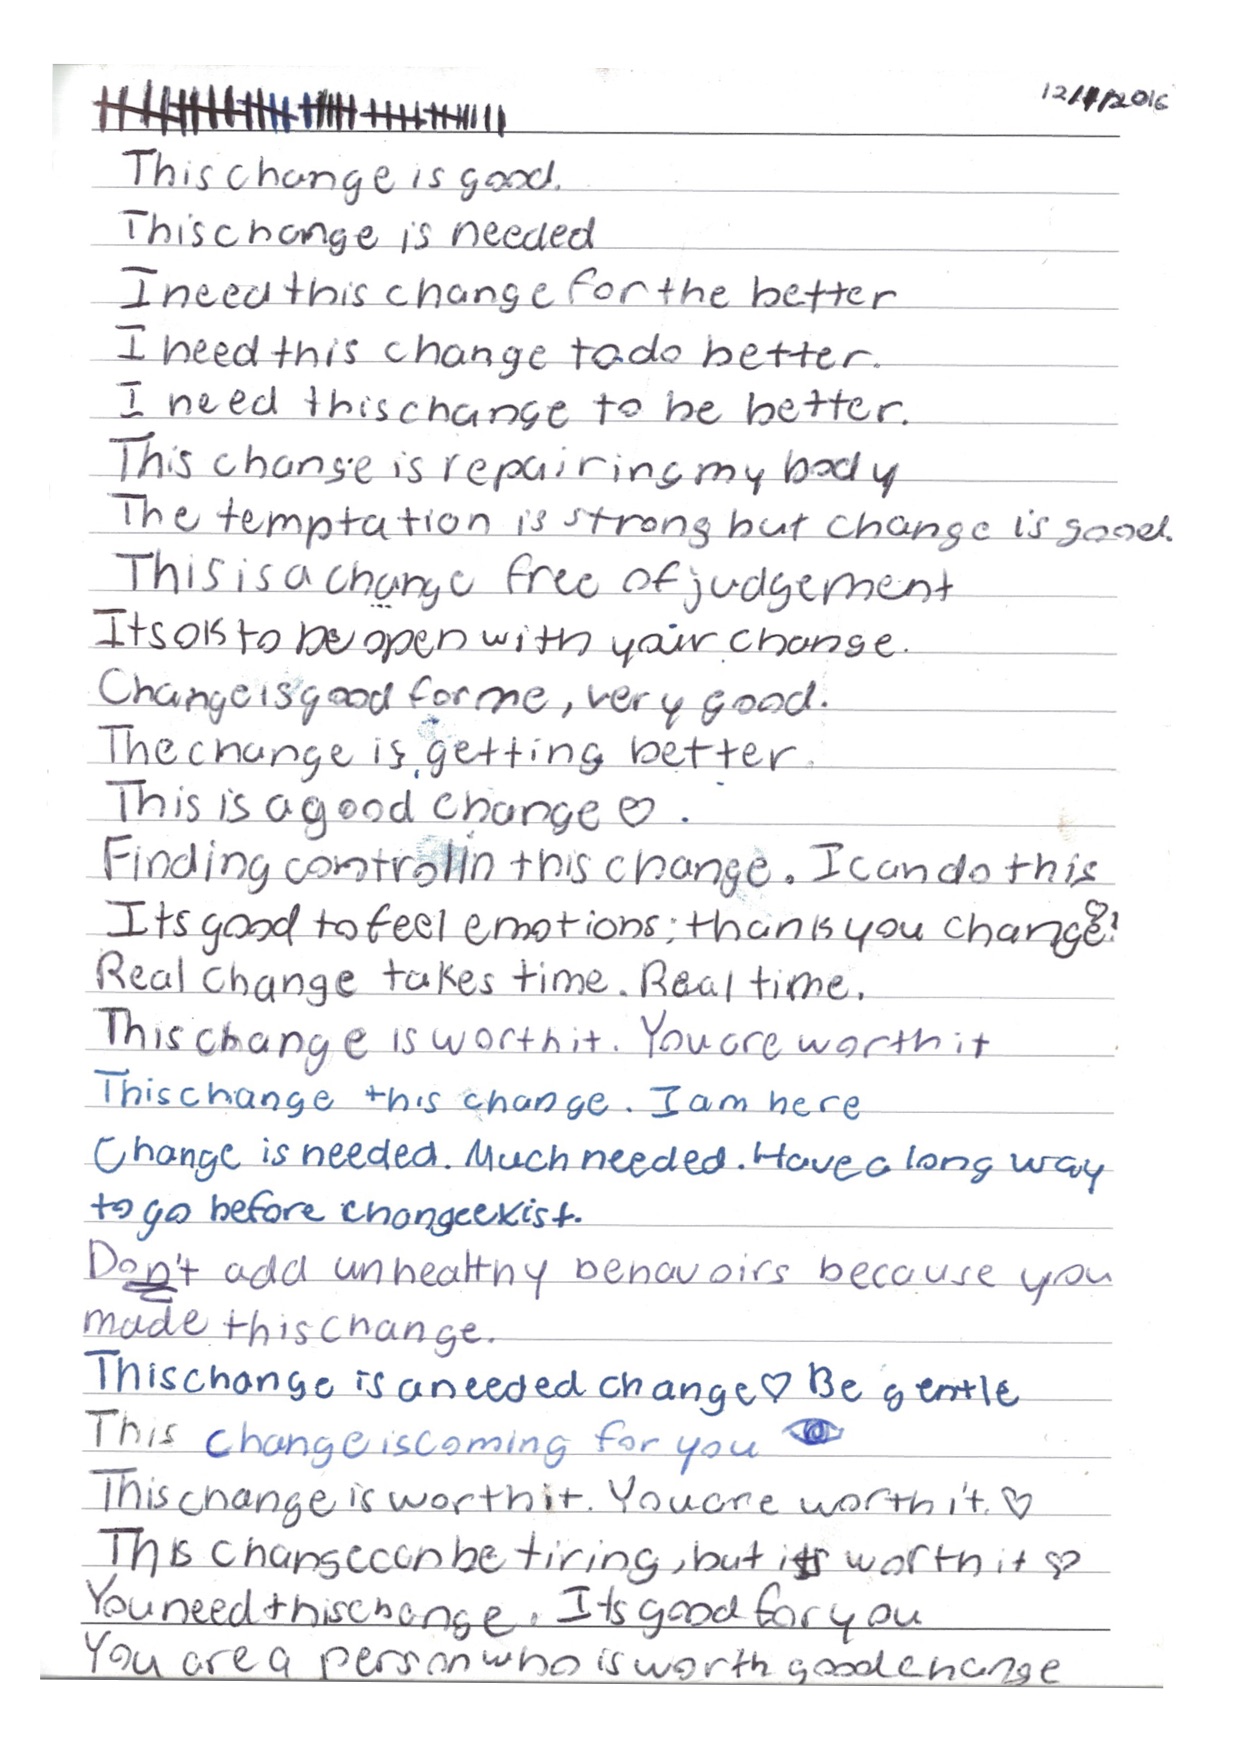 12/1/2016
This change is good.
This change is needed
I need this change for the better
I need this change to do better.
I need this change to be better.
This change is repairing my body
The temptation is strong but change is good.
This is a change free of judgement
Its ok to be open with your change.
Change is good for me, very good.
The change is getting better.
This is a good change ♡.
Finding control in this change. I can do this
Its good to feel emotions; thank you change♡!
Real change takes time. Real time.
This change is worth it. You are worth it
This change this change. I am here
Change is needed. Much needed. Have a long way
to go before change exist.
Don't add unhealthy behavoirs because you
made this change.
This change is a needed change♡ Be gentle
This change is coming for you
This change is worth it. You are worth it. ♡
This change can be tiring, but its worth it ♡
You need this change. Its good for you
You are a person who is worth good change